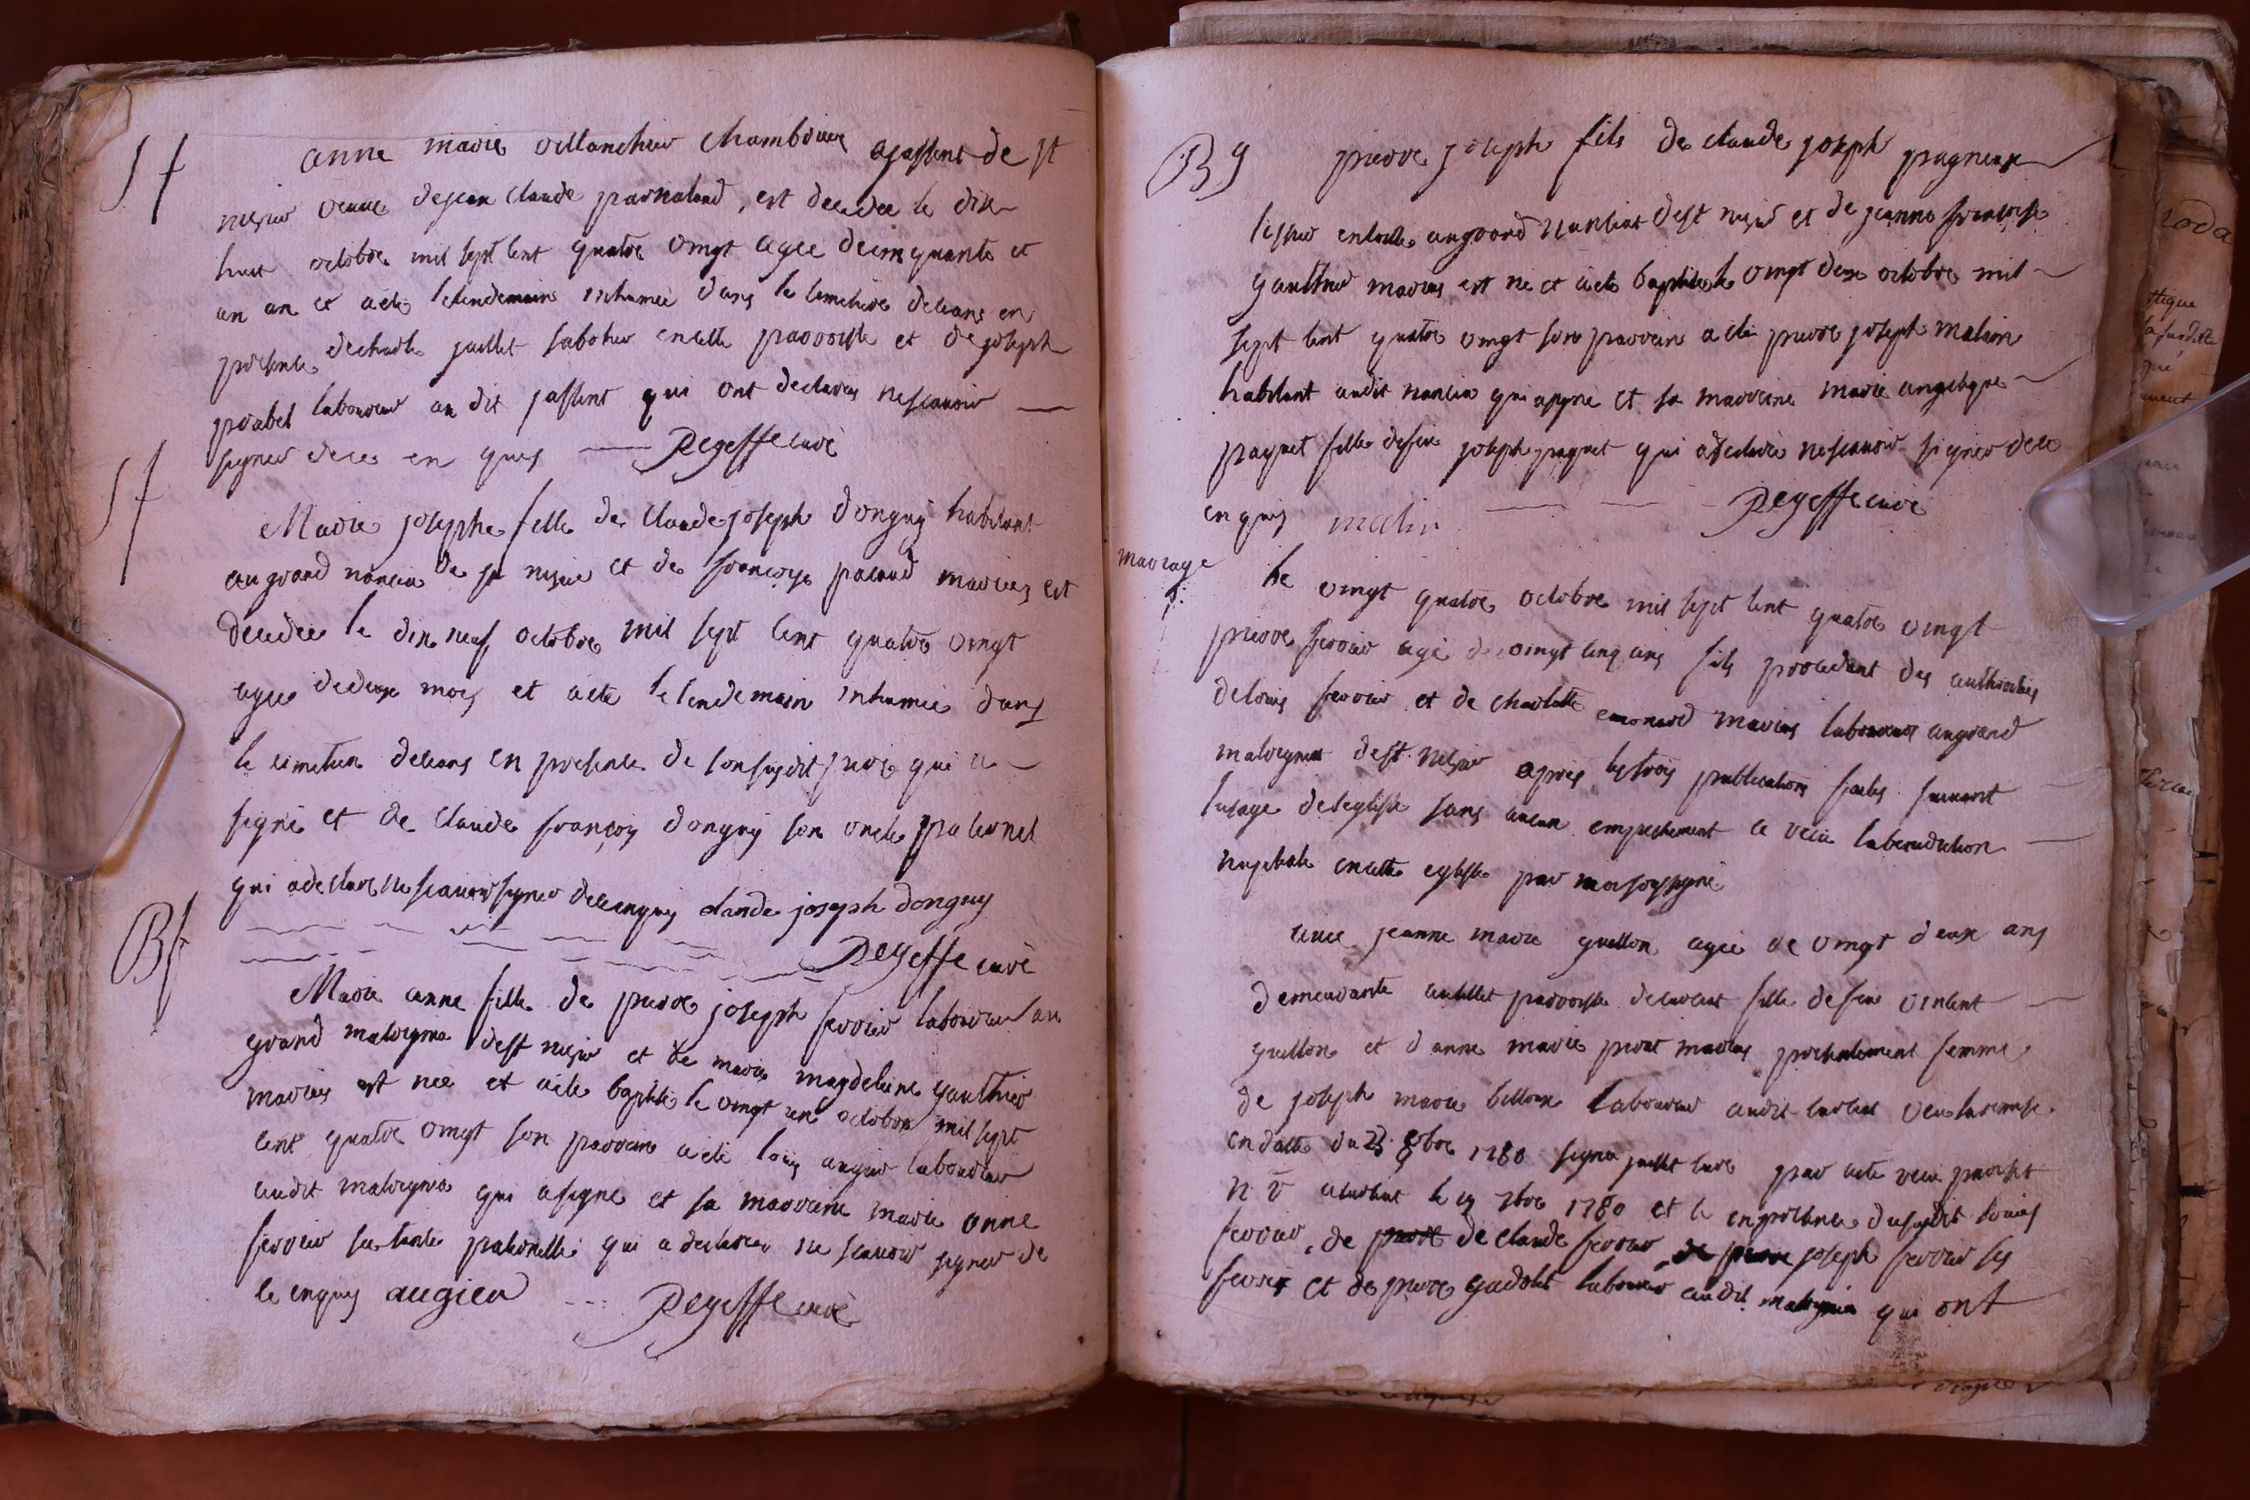 S f
anne marie villanchier chambriere a jassent de st
nizier veuve de jean claude parnaland, est decedee le dix
huit octobre mil sept cent quatre vingt agee de cinquante et
un an et a été le lendemain inhumée dans le cimetiere de ceans en
presence de charle juillet sabotier en cette parroisse et de joseph
probel laboureur au dit jassent qui ont declarés ne scavoir
signer de ce en quis Degeffe curé
S f
Marie josephe fille de claude joseph donguy habitant
au grand nancia de st nizié et de françoise pacaud mariés est
decedée le dix neuf octobre mil sept cent quatre vingt
agee de deux mois et a été le lendemain inhumée dans
le cimetiere de ceans en presence de son susdit pere qui a
signé et de claude françois donguy son oncle paternel
qui a declaré ne scavoir signer de ce enquis claude joseph donguy
Degeffe curé
B f
Marie anne fille de pierre joseph ferrier laboureur au
grand malvigna de st nizié et de marie magdeleine gauthier
mariés est née et a été baptisée le vingt un octobre mil sept
cent quatre vingt son parrein a été louis augier laboureur
audit malvigna qui a signé et sa marreine marie anne
ferrier sa tante paternelle qui a declaré ne scavoir signer de
ce enquis augier Degeffe curé
B g
pierre joseph fils de claude joseph pagneux
au grand nanciat de st nizié et de jeanne françoise
gauthier mariés est né et a été baptisé le vingt deux octobre mil
sept cent quatre vingt son parrein a été pierre joseph malin
habitant audit nancia qui a signé et sa marreine marie angelique
paquet fille de feu joseph paquet qui a declaré ne scavoir signer de ce
enquis malin Degeffe curé
mariage
le vingt quatre octobre mil sept cent quatre vingt
pierre ferrier agé de vingt cinq ans fils procedant des authorités
de louis ferrier et de charlotte emonard mariés laboureur au grand
malvignat de st nizier après les trois publications faites suivant
l'usage de l'eglise sans aucun empechement a reçu la benediction
nuptiale en cette eglise par moi soussigné
avec jeanne marie guillon agée de vingt deux ans
demeurante parroisse de curciat fille de feu vincent
guillon et d'anne marie pirat mariés presentement femme
de joseph marie billoux laboureur audit curciat veu la remise
en datte du 23 8bre 1780 signé juillet curé par acte reçu
curciat le 7bre 1780 et le en presence du susdit louis
ferrier, de de claude ferrier, joseph ferrier ses
freres et de pierre gadolet laboureur audit malvignia qui ont